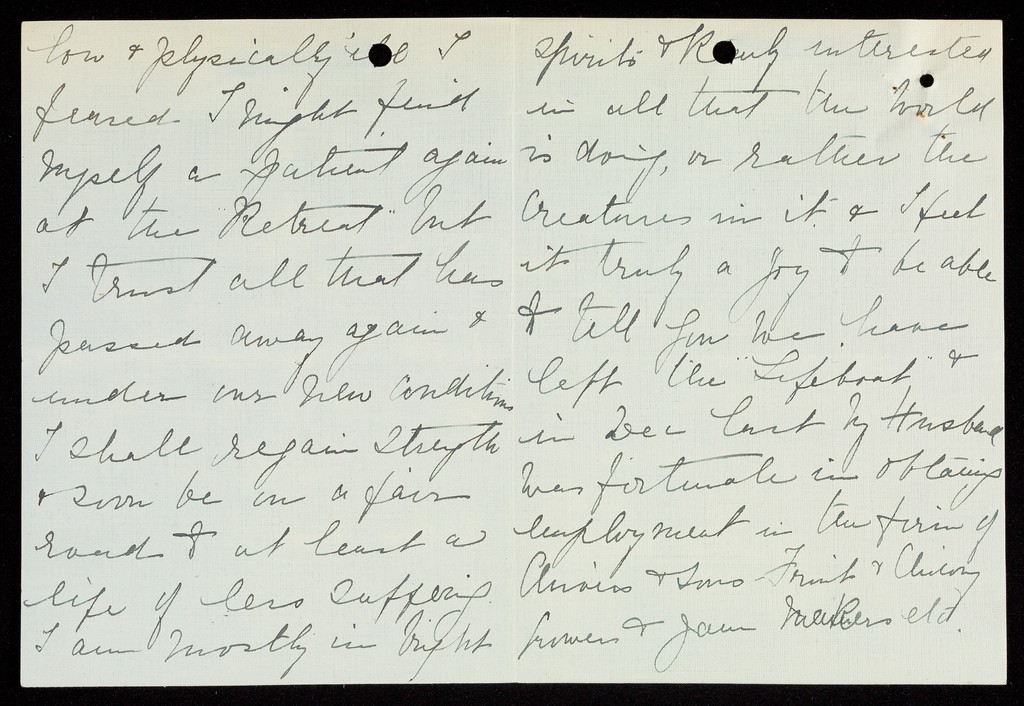 low & physically ill I
feared I might find
myself a patient again
at the "Retreat" but
I trust all that has
passed away again &
under our new conditions
I shall regain strength
& soon be on a fair
road to at least a
life of less suffering.
I am mostly in bright
spirits & keenly interested
in all that the world
is doing, or rather the
creatures in it. & I feel
it truly a joy to be able
to tell you we have
left the "Lifeboat" &
in Dec last my Husband
was fortunate in obtaining
employment in the firm of
Chivers & Sons - Fruit &
growers & Jam Makers etc.